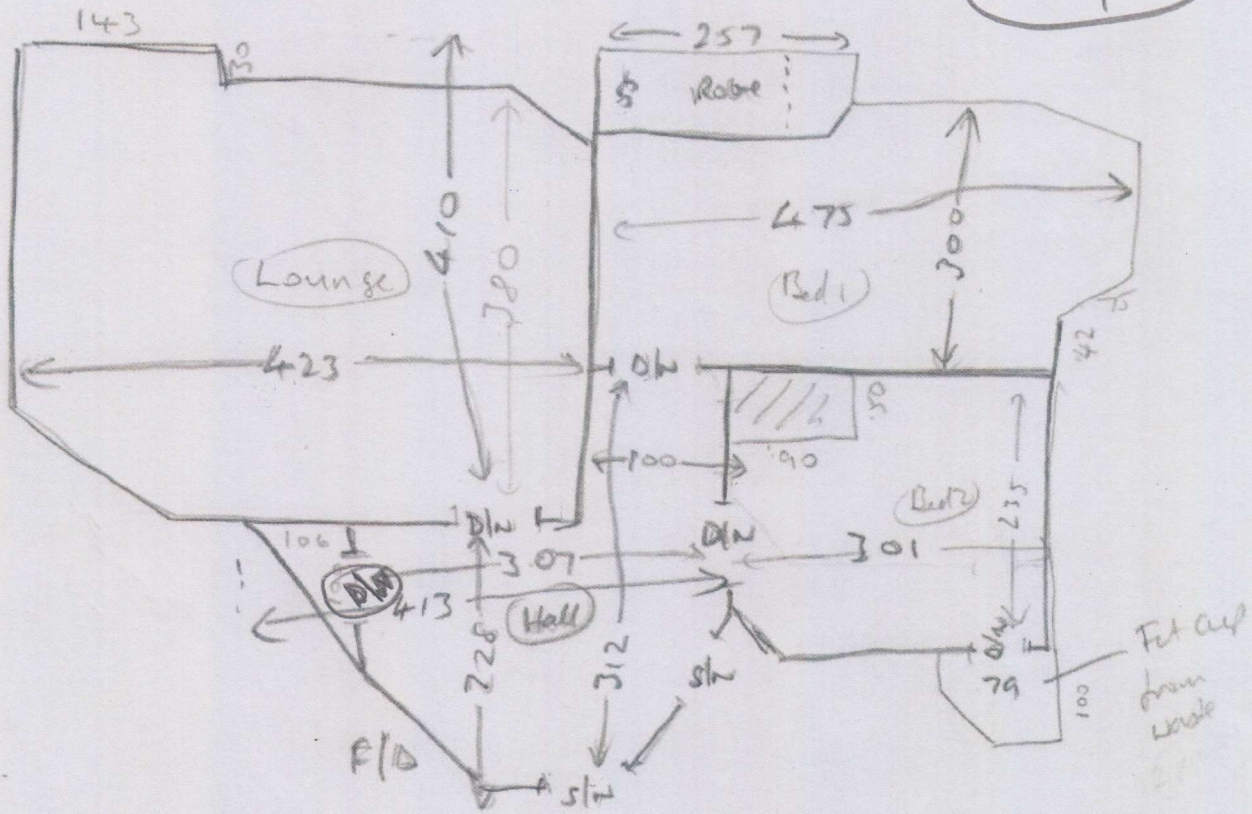 143
30
257
Robe
410
380
475
300
Lounge
Bed 1
423
D/Z
42
50
100
90
Bed 2
235
D/Z
D/Z
106
307
301
413
Hall
228
312
S/Z
D/Z
79
100
Fit cup
from
waste
F/D
S/Z